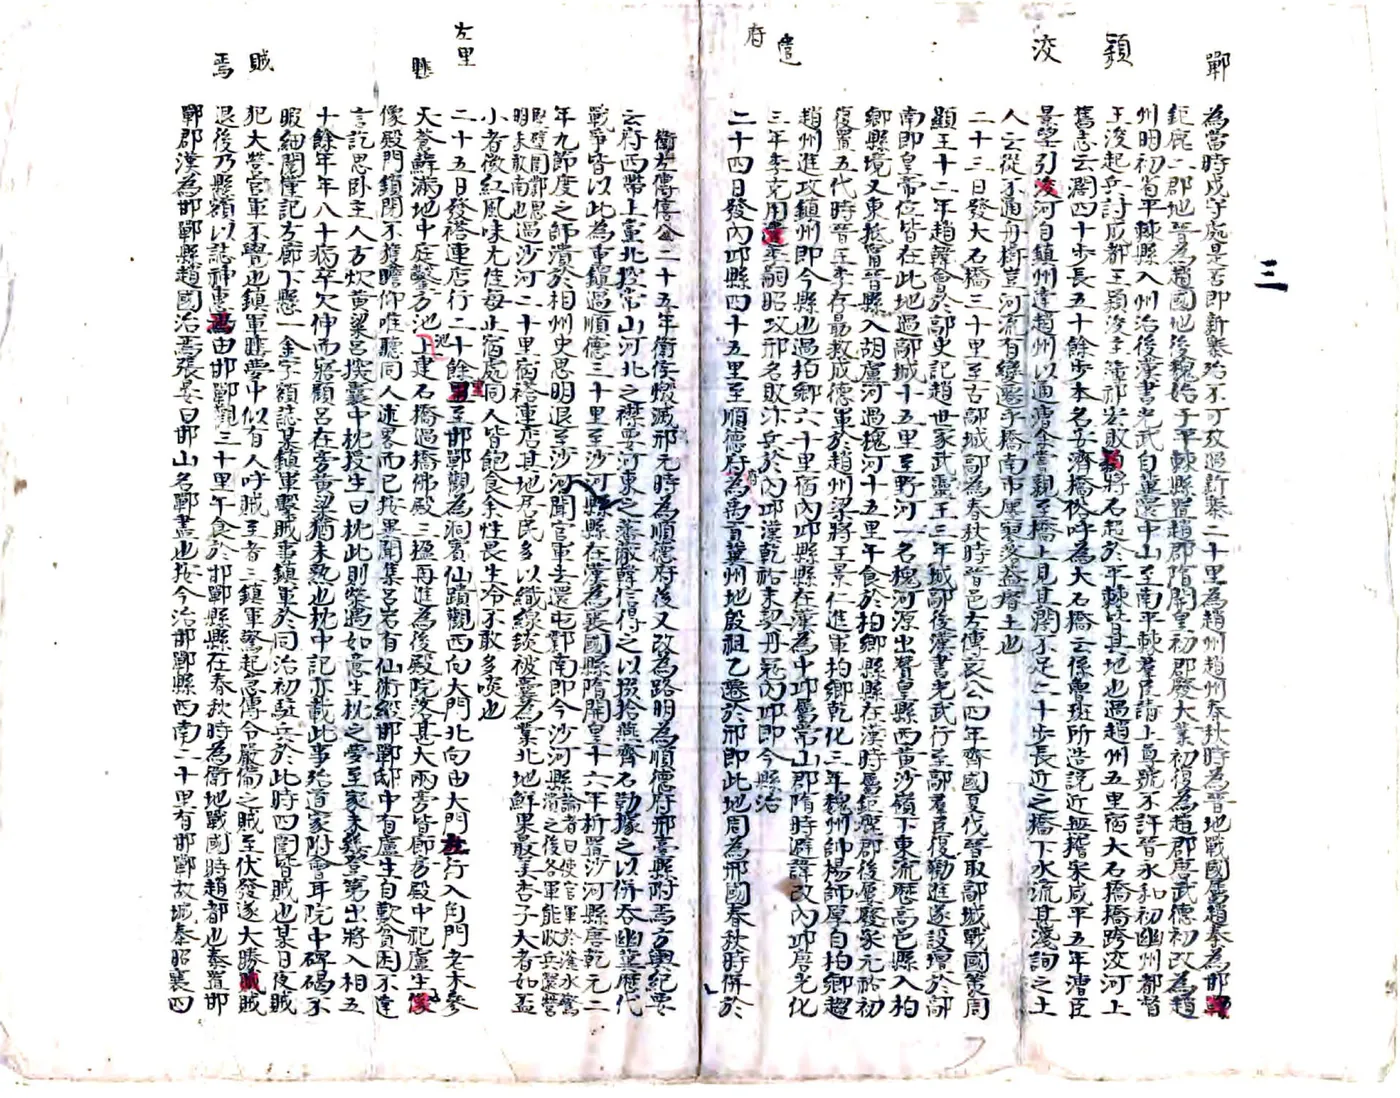 三
鄲
潁
洨
遣
府
左里
匪
賊
焉
為當時戍守處是否即新寨殆不可攷過新寨二十里為趙州趙州春秋時為晉地戰國屬趙秦為邯鄲
鉅鹿二郡地晉為趙國地後魏始于平棘縣置趙郡隋開皇初郡廢大業初復為趙郡唐武德初改為趙
州明初省平棘縣入州治後漢書光武自薊還中山至南平棘羣臣請上尊號不許晉永和初幽州都督
王浚起兵討成都王穎浚主簿祁宏敗穎將石超於平棘皆其地也過趙州五里宿大石橋橋跨洨河上
舊志云濶四十步長五十餘步本名安濟橋俗呼為大石橋云係魯班所造說近無稽宋咸平五年漕臣
景望引洨河自鎮州達趙州以通漕余嘗親至橋上見其濶不足二十步長近之橋下水流甚淺詢之土
人云從不通舟楫豈河流有變遷乎橋南市廛寥落益瘠土也
二十三日發大石橋三十里至古鄗城鄗為春秋時晉邑左傳哀公四年齊國夏伐晉取鄗城戰國策周
顯王十二年趙韓會於鄗史記趙世家武靈王三年城鄗後漢書光武行至鄗羣臣復勸進遂設壇於鄗
南即皇帝位皆在此地過鄗城十五里至野河一名槐河源出贊皇縣西黃沙嶺下東流歷高邑縣入柏
鄉縣境又東抵甯晉縣入胡盧河過槐河十五里午食於柏鄉縣縣在漢時屬鉅鹿郡後屢廢宋元祐初
復置五代時晉王李存勗救成德軍於趙州梁將王景仁進軍柏鄉乾化三年魏州帥楊師厚自柏鄉趨
趙州進攻鎮州即今縣也過柏鄉六十里宿內邱縣縣在漢為中邱屬常山郡隋時避諱改內邱唐光化
三年李克用遣李嗣昭攻邢名敗汴兵於內邱漢乾祐末契丹寇內邱即今縣治
二十四日發內邱縣四十五里至順德府府為禹貢冀州地殷祖乙遷於邢即此地周為邢國春秋時併於
衛左傳僖公二十五年衛侯燬滅邢元時為順德府後又改為路明為順德府邢臺縣附焉方輿紀要
云府西帶上黨北控常山河北之襟要河東之藩蔽韓信得之以掇拾燕齊石勒據之以併吞幽冀歷代
戰爭皆以此為重鎮過順德三十里至沙河縣縣在漢為襄國縣隋開皇十六年析置沙河縣唐乾元二
年九節度之師潰於相州史思明退至沙河聞官軍去還屯鄴南即今沙河縣論者曰使官軍於滏水驚潰之後各軍能收兵還營
堅壁間鄴思明未敢南也過沙河二十里宿褡連店其地居民多以織線緂被囊為業北地鮮果最美杏子大者如盃
小者微紅風味尤佳每止宿處同人皆飽食余性畏生冷不敢多啖也
二十五日發褡連店行二十餘里至邯鄲觀為洞賓仙蹟觀西向大門北向由大門左行入角門老木參
天蒼蘚滿地中庭鑿方池池上建石橋過橋佛殿三楹再進為後殿院落甚大兩旁皆廊房殿中祀盧生像
像殿門鎖閉不獲瞻仰唯聽同人述畧而已按異聞集呂岩有仙術經邯鄲邸中有盧生自歎貧困不達
言訖思臥主人方炊黃粱呂探囊中枕授生曰枕此則榮遇如意生枕之夢至家未幾登第出將入相五
十餘年年八十病卒欠伸而寤顧呂在旁黃粱猶未熟也枕中記亦載此事殆道家附會耳院中碑碣不
暇細閱僅記方廊下懸一金字額誌某鎮軍擊賊事鎮軍於同治初駐兵於此時四圍皆賊也某日夜賊
犯大營官軍不覺也鎮軍睡夢中似有人呼賊至者三鎮軍驚起急傳令嚴備之賊至伏發遂大勝賊賊
退後乃縣額以誌神惠焉由邯鄲觀三十里午食於邯鄲縣縣在春秋時為衛地戰國時趙都也秦置邯
鄲郡漢為邯鄲縣趙國治焉張晏曰邯山名鄲盡也按今治邯鄲縣西南二十里有邯鄲故城秦昭襄四